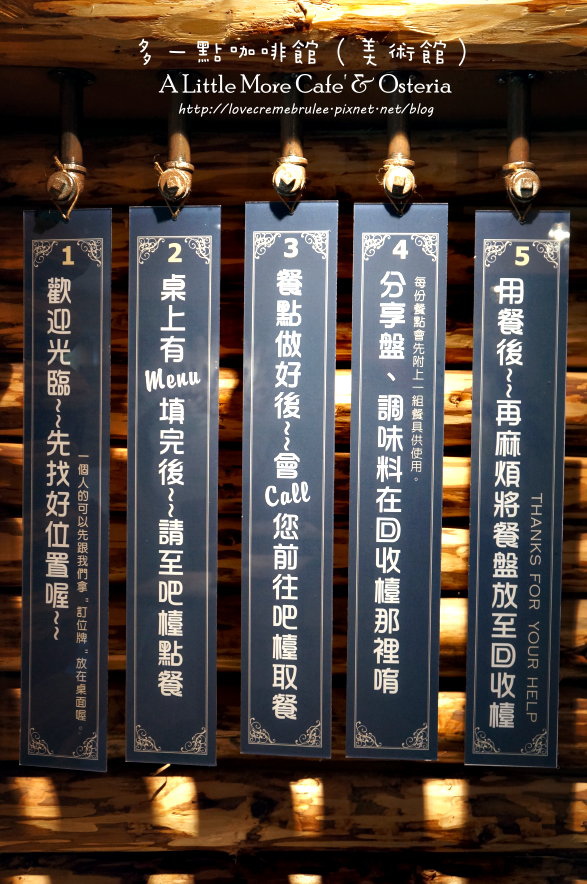 多一點咖啡館(美術館)
A Little More Cafe' & Osteria
http://lovecremebrulee.pixnet.net/blog
1
歡迎光臨~~先找好位置喔~~
一個人的可以先跟我們拿"訂位牌"放在桌面喔。
2
桌上有Menu填完後~~請至吧檯點餐
3
餐點做好後~~會Call您前往吧檯取餐
4
每份餐點會先附上一組餐具供使用。
分享盤、調味料在回收檯那裡唷
5
用餐後~~再麻煩將餐盤放至回收檯
THANKS FOR YOUR HELP